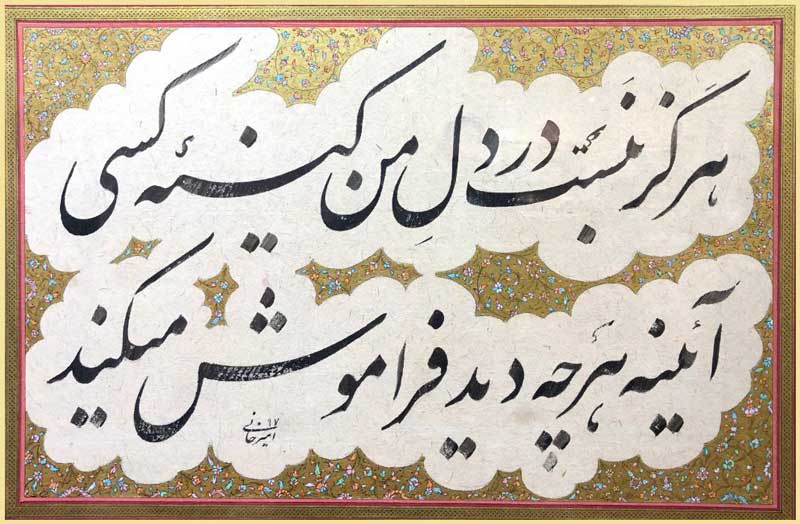 هرگز نبست در دلِ من کینهٔ کسی
آئینه هرچه دید فراموش میکند
امیرخانی ۹۷